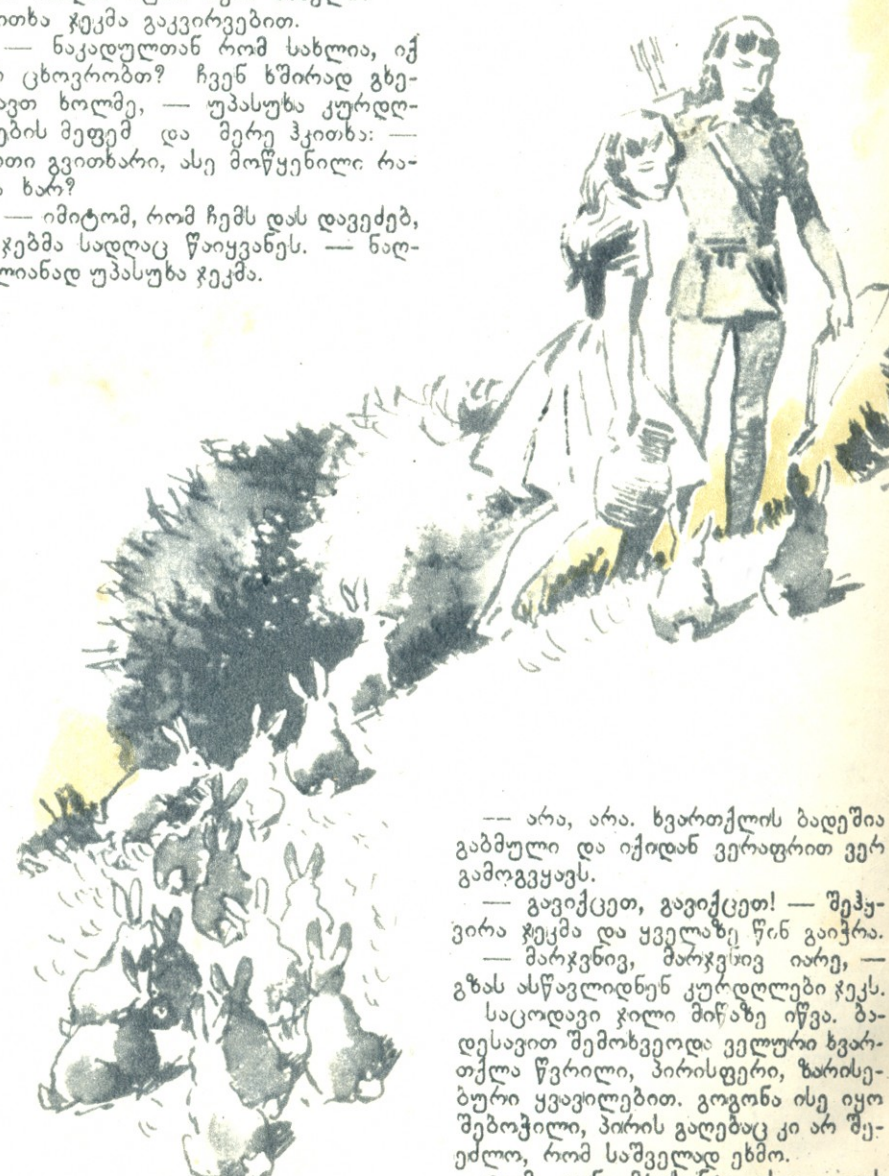 ითხა ჯეკმა გაკვირვებით.
— ნაკადულთან რომ სახლია, იქ
ცხოვრობთ? ჩვენ ხშირად გხე-
ავთ ხოლმე, — უპასუხა კურდღ-
ების მეფემ და მერე ჰკითხა: —
ოთი გვითხარი, ასე მოწყენილი რა-
ხარ?
— იმიტომ, რომ ჩემს დას დავეძებ,
ჯებმა სადღაც წაიყვანეს. — ნაღ-
ლიანად უპასუხა ჯეკმა.
— არა, არა. ხვართქლის ბადეშია
გაბმული და იქიდან ვერაფრით ვერ
გამოგვყავს.
— გავიქცეთ, გავიქცეთ! — შეჰყ-
ვირა ჯეკმა და ყველაზე წინ გაიჭრა.
— მარჯვნივ, მარჯვნივ იარე, —
გზას ასწავლიდნენ კურდღლები ჯეკს.
საცოდავი ჯილი მიწაზე იწვა. ბა-
დესავით შემოხვეოდა ველური ხვარ-
თქლა წვრილი, პირისფერი, ზარისე-
ბური ყვავილებით. გოგონა ისე იყო
შებოჭილი, პირის გაღებაც კი არ შე-
ეძლო, რომ საშველად ეხმო.